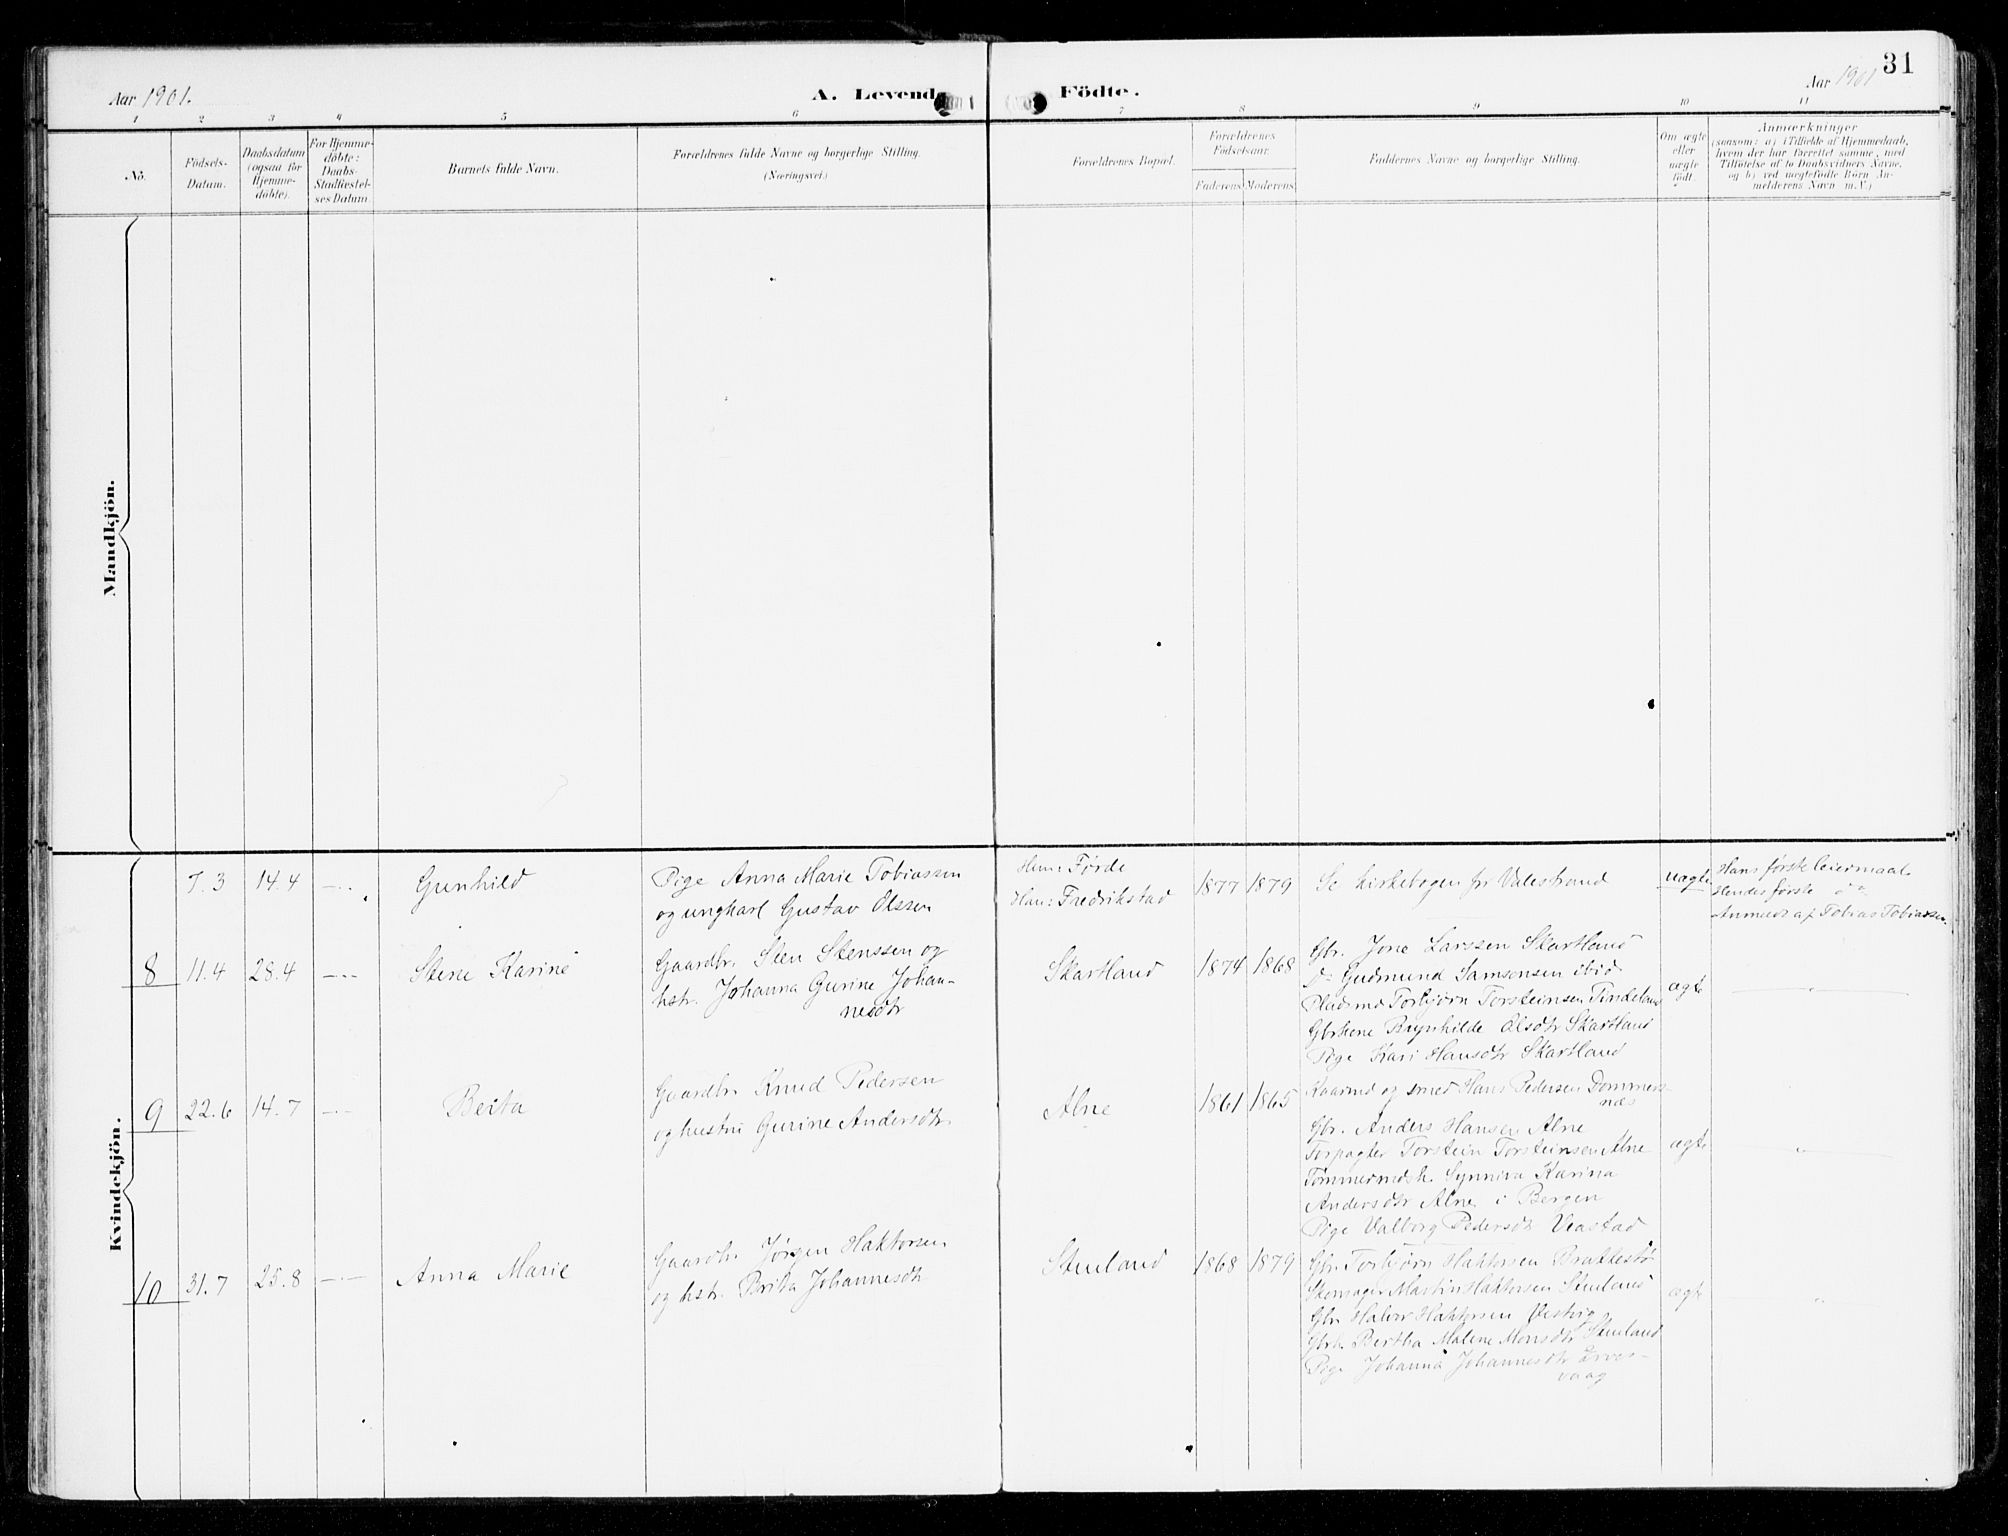 31
Aar 1901.
A. Levende
Födte.
Aar 1901
1 2 3 4 5 6 7 8 9 10 11
No.
Födsels-
Datum.
Daabsdatum
(ogsaa för
Hjemme-
döbte).
For Hjemme-
döbte:
Daabs-
Stadfæstel-
ses Datum
Barnets fulde Navn.
Forældrenes fulde Navne og borgerlige Stilling.
(Næringsvei.)
Forældrenes Bopæl.
Forældrenes
Födselsaar.
Faderens Moderens
Faddernes Navne og borgerlige Stilling.
Om ægte
eller
uægte
födt.
Anmærkninger
(saasom: a) i Tilfælde af Hjemmedaab,
hvem der har forrettet samme, med
Tilföielse af to Daabsvidners Navne,
og b) ved uægtefödte Börn An-
melderens Navn m.V.)
Mandkjön.
Kvindekjön.
7.3 14.4 Gunhild
Pige Anna Marie Tobiassen
og ungkarl Gustav Olssen
Hun: Førde
Han: Fredrikstad
1877 1879
Se kirkebogen for Valestrand
uægte
Hans første leiermaal.
Hendes første do
Anmeldt af Tobias Tobiassen
8 11.4 28.4 Stine Karine
Gaardbr. Sten Stenssen og
hstr. Johanna Gurine Johan-
nesdtr
Skartland
1874 1868
Gbr. Jone Larssen Skartland
Do Gudmund Samsonsen ibid
Pladsmd Torbjørn Torsteinsen Tindeland
Gbrkone Brynhilde Olsdtr Skartland
Pige Kari Hansdtr Skartland
ægte
9 22.6 14.7 Berta
Gaardbr. Knud Pedersen
og hustru Gurine Andersdtr.
Alne
1861 1865
Kaarmd og smed Hans Pedersen Dommers-
næs
Gbr. Anders Hansen Alne
Forpagter Torstein Torsteinsen Alne
Tømmermdsk. Synniva Karina
Andersdtr Alne i Bergen
Pige Valborg Pedersdtr Veastad
ægte
10 31.7 25.8 Anna Marie
Gaardbr. Jørgen Haktorsen
og hstr. Brita Johannesdtr
Stueland
1868 1879
Gbr. Torbjørn Haktorsen Brattestø
Skomager Martin Haktorsen Stueland
Gbr Halvor Haktorsen Vestvig
Gbrk. Bertha Malene Monsdtr Stueland
Pige Johanna Johannesdtr Ørves-
vaag
ægte